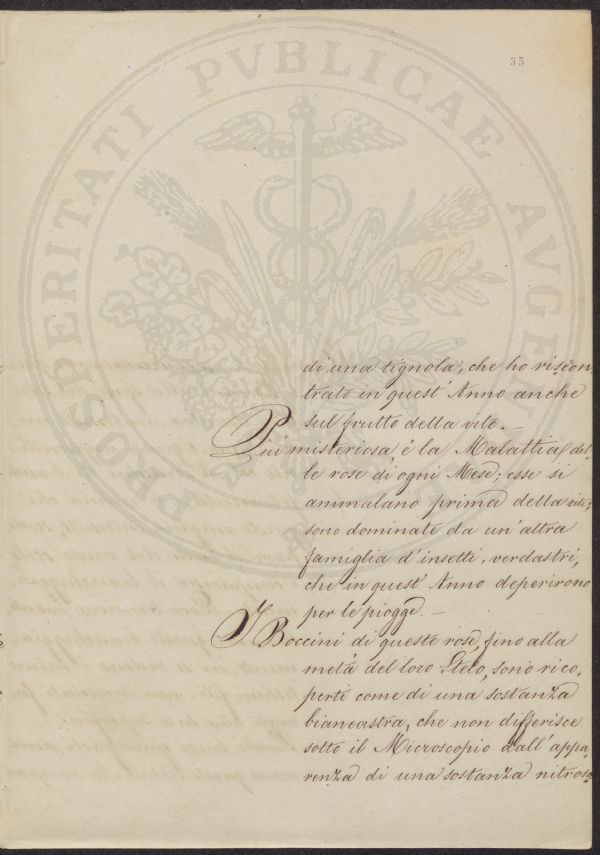 35
PROSPERITATI PVBLICAE AVGEN
di una tignola, che ho riscon,
trato in quest' Anno anche
sul frutto della vite. –
Più misteriosa è la Malattia del-
le rose di ogni Mese; esse si
ammalano prima della vite;
sono dominate da un'altra
famiglia d'insetti, verdastri,
che in quest' Anno deperirono
per le piogge. –
I Boccini di queste rose, fino alla
metà del loro Stelo, sono rico,
perti come di una sostanza
biancastra, che non differisce
sotto il Microscopio dall'appa,
renza di una sostanza nitrosa